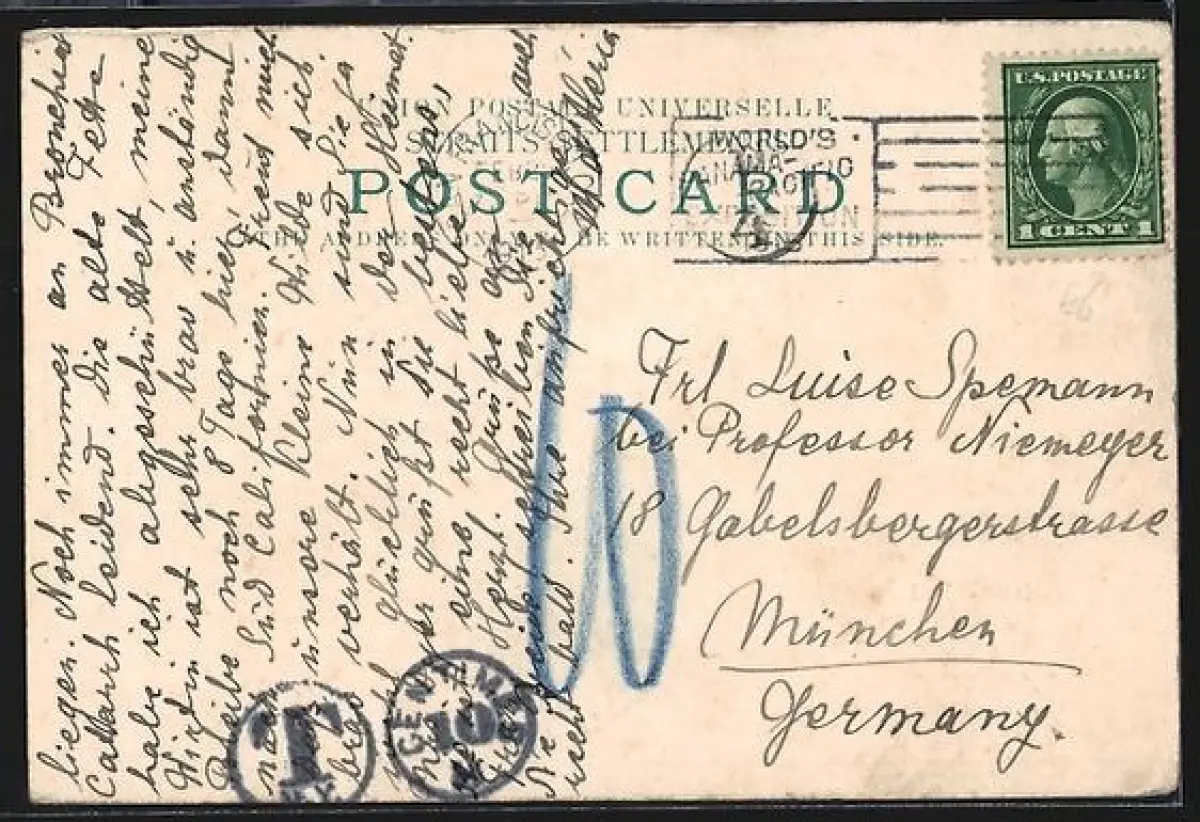 UNION POSTALE UNIVERSELLE
STRAITS SETTLEMENTS
POST CARD
THE ADDRESS ONLY TO BE WRITTEN ON THIS SIDE.
WORLD'S
PANAMA-
PACIFIC
EXPOSITION
U.S. POSTAGE
1 CENT 1
Frl Luise Spemann
bei Professor Niemeyer
18 Gabelsbergerstrasse
München
Germany.
10
T
CENTIMES
10
liegen. Noch immer an Bronchial
Catarrh leidend. Die alte Fette
habe ich abgeschüttelt, meine
ist sehr brav u. anständig
Bleibe noch 8 Tage hier, dann
Süd Californien. Freut mich
unsere kleine Wilde sich
brav verhält. Nun sind Sie ja
glücklich in der Heimat.
grüßt die
eine recht liebe,
Herzl. Grüße an
auch
recht bald. Ihre aufrichtige